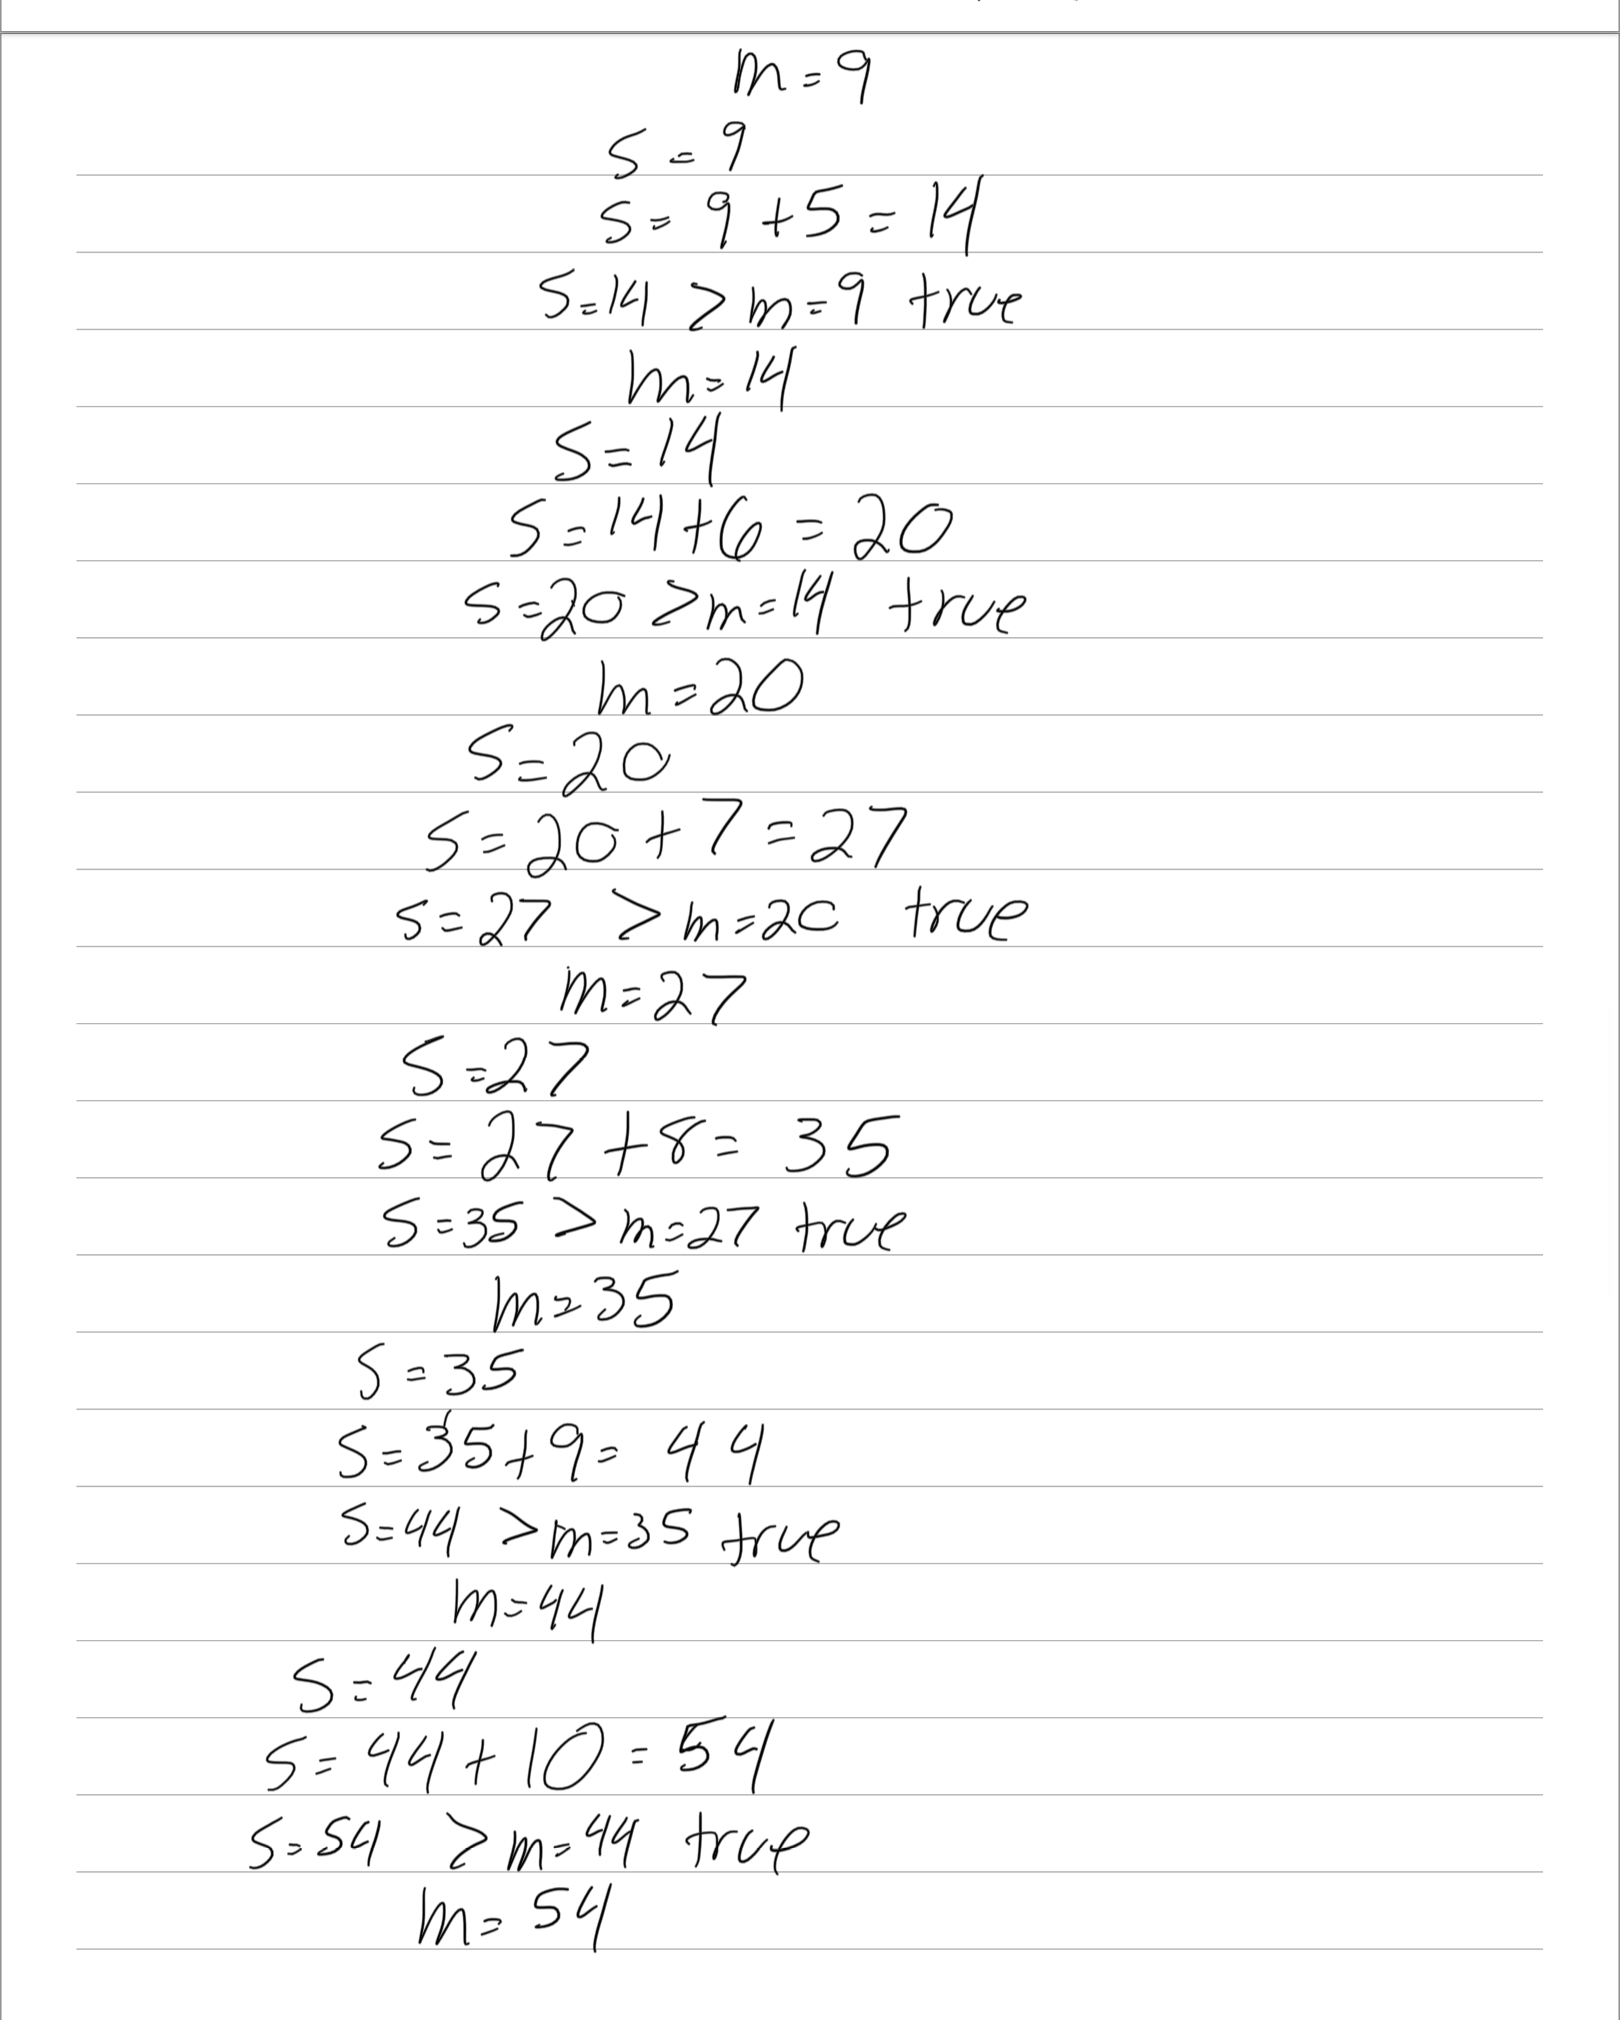 m=9
S=9
S=9+5=14
S=14 > m=9 true
m=14
S=14
S=14+6=20
S=20 > m=14 true
m=20
S=20
S=20+7=27
S=27 > m=20 true
m=27
S=27
S=27+8=35
S=35 > m=27 true
m=35
S=35
S=35+9=44
S=44 > m=35 true
m=44
S=44
S=44+10=54
S=54 > m=44 true
m=54